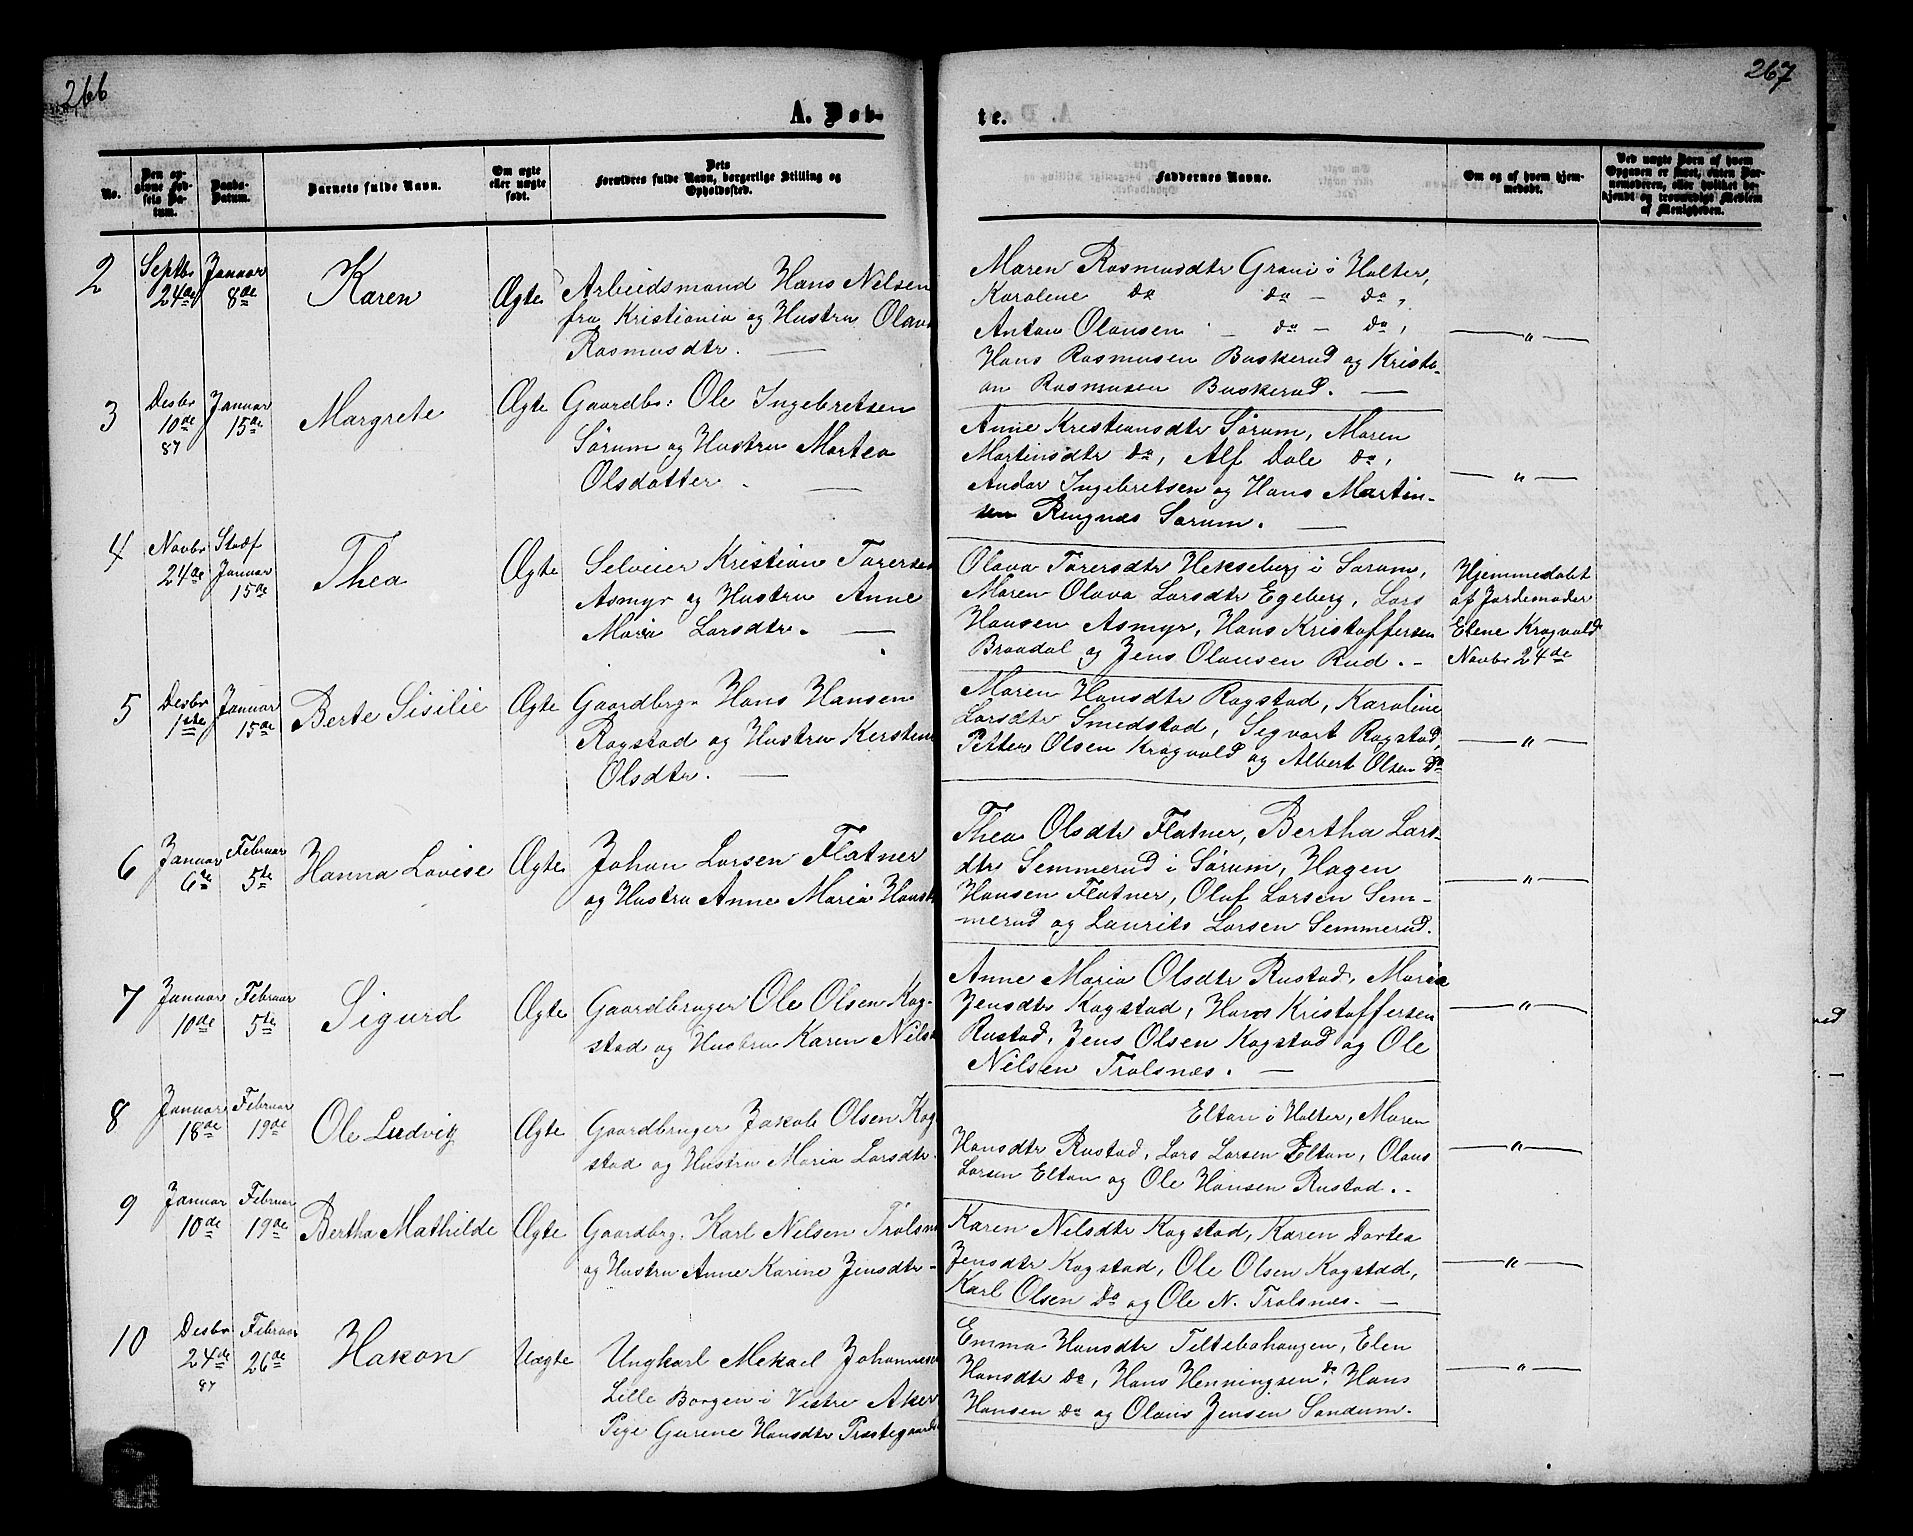 266
267
A. Døb-
te.
No.
Den op-
givne Fød-
sels Da-
tum.
Daabs-
Datum.
Barnets fulde Navn.
Om ægte
eller uægte
født.
Dets
Forældres fulde Navn, borgerlige Stilling og
Opholdssted.
Faddernes Navne.
Om og af hvem hjem-
medøbt.
Ved uægte Børn af hvem
Opgaven er skeet, enten Bar-
nemoderen, eller hvilket be-
kjendt og troværdige Medlem
af Menigheden.
2
Septbr
24de
Januar
8de
Karen
Ægte
Arbeidsmand Hans Nilsen
fra Kristiania og Hustru Olava
Rasmusdtr. —
Maren Rasmusdtr Grani i Holter,
Karolene do do — do,
Anton Olausen — do — do,
Hans Rasmusen Buskerud og Kristi-
an Rasmusen Buskerud. —
— " —
3
Desbr
10de
87
Januar
15de
Margrete
Ægte
Gaardbr: Ole Ingebretsen
Sørum og Hustru Martea
Olsdatter. —
Anne Kristiansdtr Sørum, Maren
Martinsdtr do, Alf Dale do,
Andor Ingebretsen og Hans Martin-
sen Ringnæs Sørum. —
— " —
4
Novbr
24de
Stadf
Januar
15de
Thea
Ægte
Selveier Kristian Torersen
Asmyr og Hustru Anne
Maria Larsdtr. —
Olava Torersdtr Hekseberg i Sørum,
Maren Olava Larsdtr Egeberg, Lars
Hansen Asmyr, Hans Kristoffersen
Braadal og Jens Olausen Rud. -
Hjemmedøbt
af Jordemoder
Elene Kragvold
Novbr 24de
5
Desbr
1ste
Januar
15de
Berte Sisilie
Ægte
Gaardbrgr Hans Hansen
Ragstad og Hustru Kerstine
Olsdtr. —
Maren Hansdtr Ragstad, Karoline
Larsdtr Smedstad, Segvart Ragstad,
Petter Olsen Kragvold og Albert Olsen do
— " —
6
Januar
6te
Februar
5te
Hanna Lovise
Ægte
Johan Larsen Flatner
og Hustru Anne Maria Hansd
Thea Olsdtr Flatner, Bertha Lars-
dtr Semmerud i Sørum, Hagen
Hansen Flatner, Oluf Larsen Sem-
merud og Laurits Larsen Semmerud.
— " —
7
Januar
10de
Februar
5te
Sigurd
Ægte
Gaardbruger Ole Olsen Kog-
stad og Hustru Karen Nilsd
Anne Maria Olsdtr Rustad, Maria
Jensdtr Kogstad, Hans Kristoffersen
Rustad, Jens Olsen Kogstad og Ole
Nilsen Trolsnæs. —
— " —
8
Januar
18de
Februar
19de
Ole Ludvig
Ægte
Gaardbruger Jakob Olsen Kog
stad og Hustru Maria Larsdtr.
Eltan i Holter, Maren
Hansdtr Rustad, Lars Larsen Eltan, Olaus
Larsen Eltan og Ole Hansen Rustad. -
— " —
9
Januar
10de
Februar
19de
Bertha Mathilde
Ægte
Gaardbrg. Karl Nilsen Trolsnæ
og Hustru Anne Karine Jensdtr -
Karen Nilsdtr Kogstad, Karen Dortea
Jensdtr Kogstad, Ole Olsen Kogstad,
Karl Olsen do og Ole N. Trolsnæs. —
— " —
10
Desbr
24de
87
Februar
26de
Hakon
Uægte
Ungkarl Mekael Johannesen
Lille Borgen i Vestre Aker
Pige Gurine Hansdtr Præstegaard
Emma Hansdtr Teltebohaugen, Elen
Hansdtr do, Hans Henningsen do, Hans
Hansen do og Olaus Jensen Sandum.
— " —